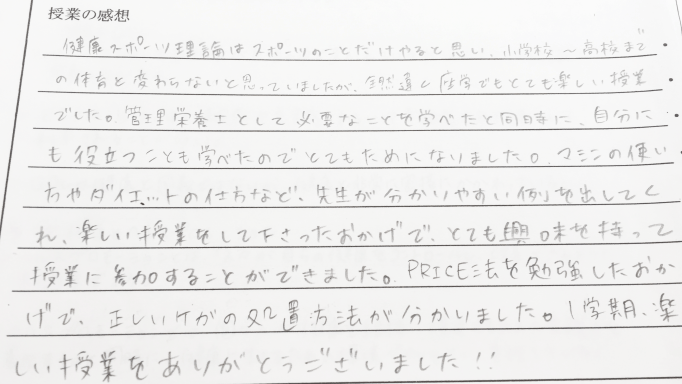 授業の感想
健康スポーツ理論はスポーツのことだけやると思い、小学校〜高校まで
の体育と変わらないと思っていましたが、全然違く座学でもとても楽しい授業
でした。管理栄養士として必要なことを学べたと同時に、自分に
も役立つことも学べたのでとてもためになりました。マシンの使い
方やダイエットの仕方など、先生が分かりやすい例を出してく
れ、楽しい授業をして下さったおかげで、とても興味を持って
授業に参加することができました。PRICE法を勉強したおか
げで、正しいケガの処置方法が分かりました。1学期、楽
しい授業をありがとうございました!!